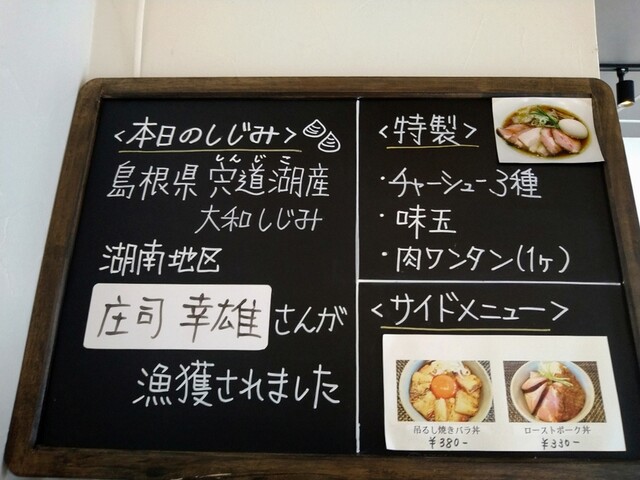 <本日のしじみ>
島根県宍道湖産
しんじこ
大和しじみ
湖南地区
庄司 幸雄さんが
漁獲されました
<特製>
・チャーシュー3種
・味玉
・肉ワンタン(1ヶ)
<サイドメニュー>
吊るし焼きバラ丼
¥380-
ローストポーク丼
¥330-